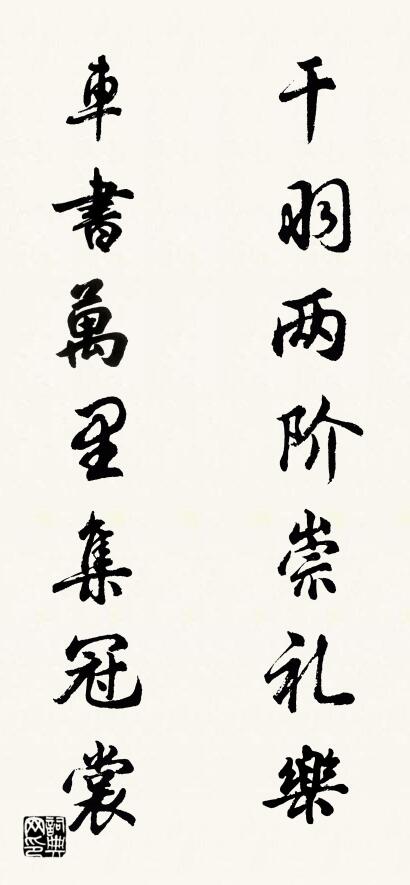 干羽两阶崇礼樂
車書萬里集冠裳
詞典网印